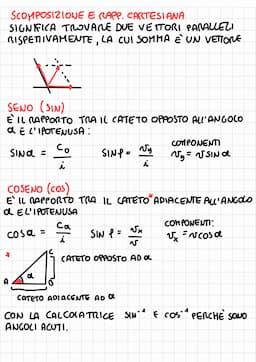 SCOMPOSIZIONE E RAPP. CARTESIANA
SIGNIFICA TROVARE DUE VETTORI PARALLELI
RISPETTIVAMENTE, LA CUI SOMMA E' UN VETTORE
SENO (SIN)
E' IL RAPPORTO TRA IL CATETO OPPOSTO ALL'ANGOLO
α E L'IPOTENUSA:
SINα = Co/i SINβ = Vy/i COMPONENTI Vy = V SINα
COSENO (COS)
E' IL RAPPORTO TRA IL CATETO* ADIACENTE ALL'ANGOLO
α E L'IPOTENUSA
COSα = Ca/i SIN β = Vx/V COMPONENTI: Vx = V COSα
*
C
CATETO OPPOSTO AD α
A α B
CATETO ADIACENTE AD α
CON LA CALCOLATRICE SIN⁻¹ E COS⁻¹ PERCHÉ SONO
ANGOLI ACUTI.